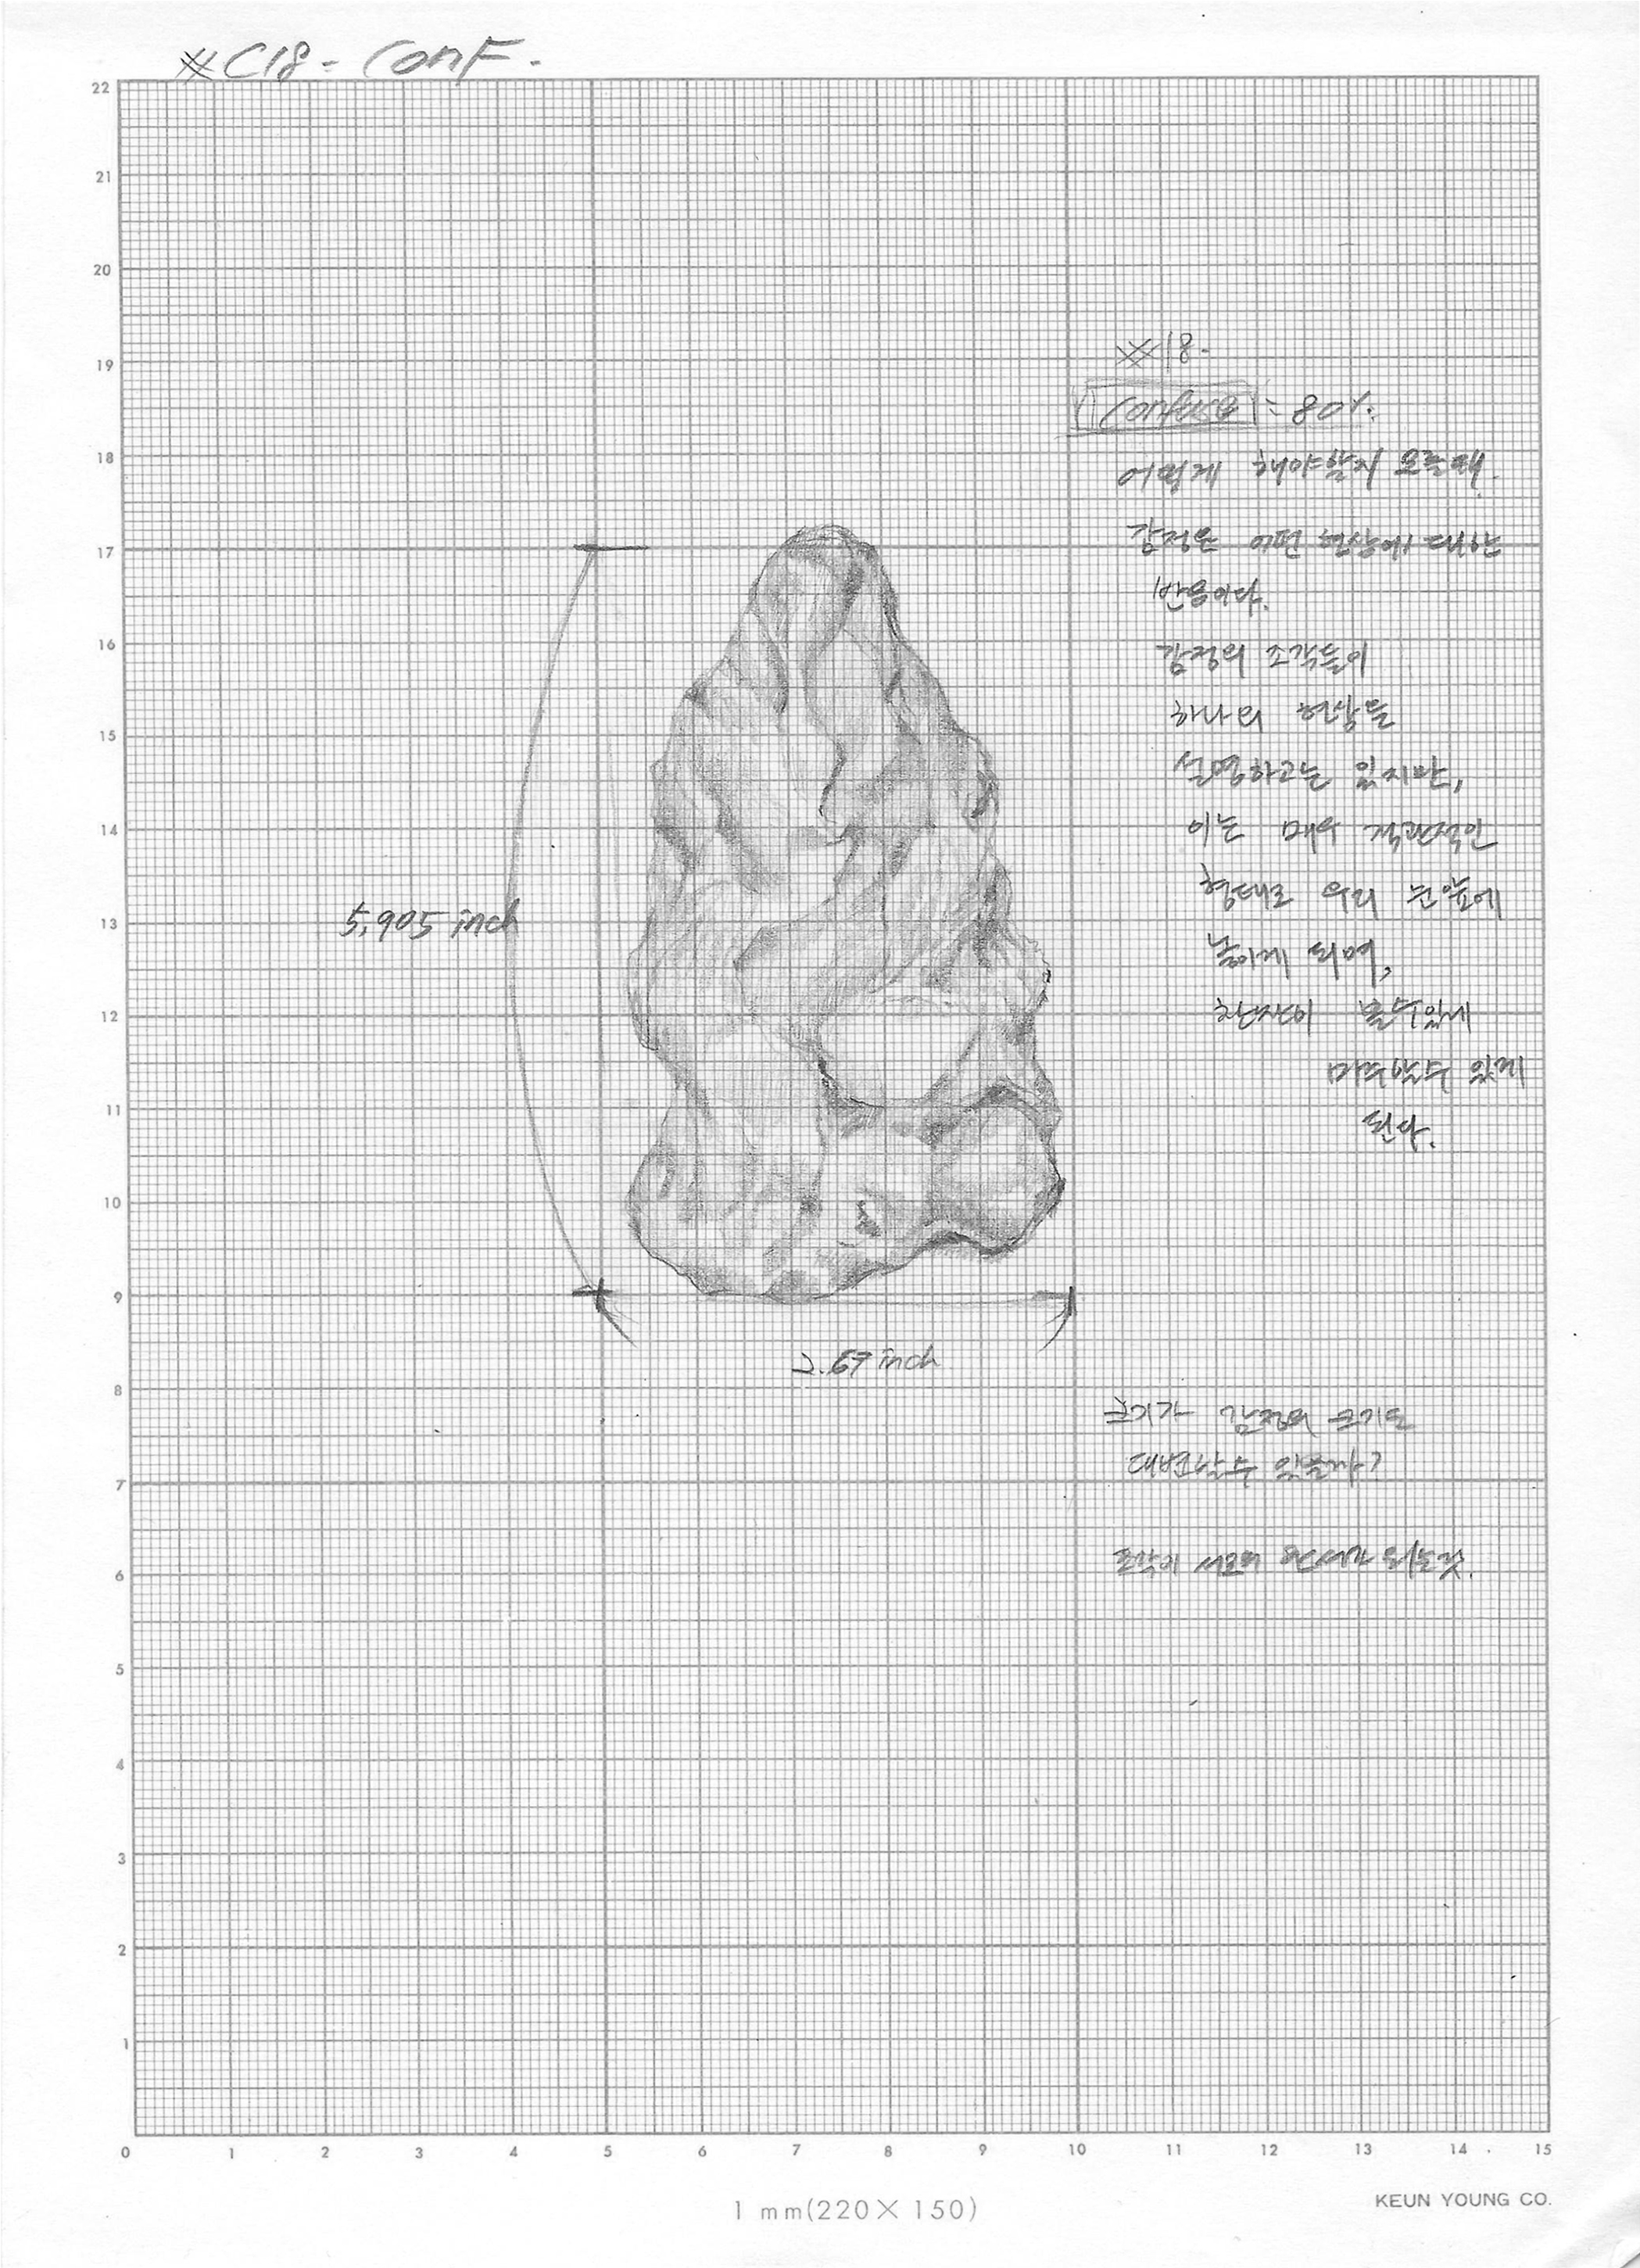 ※C18 - CONF.
※18-
Confuse = 80%.
어떻게 해야할지 모를때.
감정은 어떤 현상에 대한
반응이다.
감정의 조각들이
하나의 현상을
설명하고는 있지만,
이는 매우 직관적인
형태로 우리 눈앞에
놓이게 되며,
볼수있게
마주할수 있게
된다.
5.905 inch
2.67 inch
크기가 감정의 크기도
대변할수 있을까?
조각이 서로의 되는것.
22
21
20
19
18
17
16
15
14
13
12
11
10
9
8
7
6
5
4
3
2
1
0 1 2 3 4 5 6 7 8 9 10 11 12 13 14 15
1 mm(220×150)
KEUN YOUNG CO.